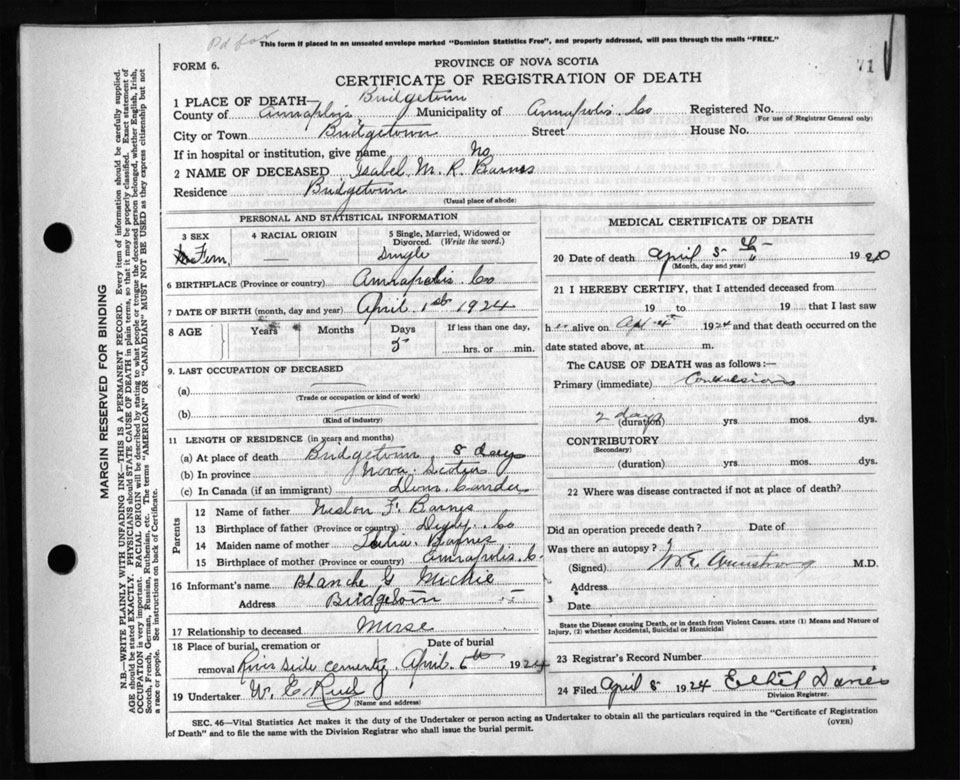 Pd for
This form if placed in an unsealed envelope marked "Dominion Statistics Free", and properly addressed, will pass through the mails "FREE."
71
FORM 6.
PROVINCE OF NOVA SCOTIA
CERTIFICATE OF REGISTRATION OF DEATH
1 PLACE OF DEATH— Bridgetown
County of Annapolis Municipality of Annapolis Co Registered No.
(For use of Registrar General only)
City or Town Bridgetown Street House No.
If in hospital or institution, give name No
2 NAME OF DECEASED Isabel M. R. Barnes
Residence Bridgetown
(Usual place of abode)
PERSONAL AND STATISTICAL INFORMATION
3 SEX 4 RACIAL ORIGIN 5 Single, Married, Widowed or Divorced. (Write the word.)
Fem — Single
6 BIRTHPLACE (Province or country) Annapolis Co
7 DATE OF BIRTH (month, day and year) April 1st 1924
8 AGE Years Months Days If less than one day,
5 hrs. or min.
9. LAST OCCUPATION OF DECEASED
(a)
(Trade or occupation or kind of work)
(b)
(Kind of industry)
11 LENGTH OF RESIDENCE (in years and months)
(a) At place of death Bridgetown 5 days
(b) In province Nova Scotia
(c) In Canada (if an immigrant)
Parents
12 Name of father F. Barnes
13 Birthplace of father (Province or country) Digby Co
14 Maiden name of mother Barnes
15 Birthplace of mother (Province or country) Annapolis C.
16 Informant's name Blanche G
Address Bridgetown
17 Relationship to deceased Nurse
18 Place of burial, cremation or removal Date of burial
River side cementry April 6th 1924
19 Undertaker W. E. Reed
(Name and address)
MEDICAL CERTIFICATE OF DEATH
20 Date of death April 5 19
(Month, day and year)
21 I HEREBY CERTIFY, that I attended deceased from
19 to 19 that I last saw
h er alive on Ap 4th 1924 and that death occurred on the
date stated above, at m.
The CAUSE OF DEATH was as follows:—
Primary (immediate) Convulsions
2 days
(duration) yrs mos. dys.
CONTRIBUTORY
(Secondary)
(duration) yrs mos. dys.
22 Where was disease contracted if not at place of death?
Did an operation precede death? Date of
Was there an autopsy?
(Signed) Armstrong M.D.
Address
Date
State the Disease causing Death, or in death from Violent Causes, state (1) Means and Nature of Injury, (2) whether Accidental, Suicidal or Homicidal
23 Registrar's Record Number
24 Filed April 8 1924 Ethel Davies
Division Registrar.
SEC. 46—Vital Statistics Act makes it the duty of the Undertaker or person acting as Undertaker to obtain all the particulars required in the "Certificate of Registration
of Death" and to file the same with the Division Registrar who shall issue the burial permit.
(OVER)
MARGIN RESERVED FOR BINDING
N.B.—WRITE PLAINLY WITH UNFADING INK—THIS IS A PERMANENT RECORD. Every item of information should be carefully supplied.
AGE should be stated EXACTLY. PHYSICIANS should STATE CAUSE OF DEATH in plain terms, so that it may be properly classified. Exact statement of
OCCUPATION is very important. RACIAL ORIGIN will be described by stating to what people or tongue the deceased person belonged, whether English, Irish,
Scotch, French, German, Russian, Ruthenian, etc. The terms "AMERICAN" OR "CANADIAN" MUST NOT BE USED as they express citizenship but not
a race or people. See instructions on back of Certificate.